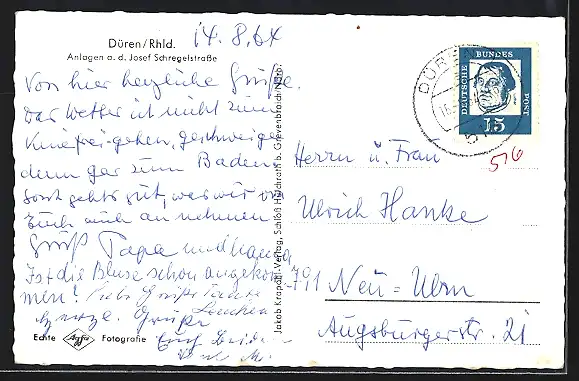 Düren/Rhld.
Anlagen a. d. Josef Schregelstraße
14.8.64
Von hier herzliche Grüße.
Das Wetter ist nicht zum
Kniefrei-gehen, geschweige
denn gar zum Baden
sonst gehts gut, was wir von
Euch auch an nehmen
Gruß Papa und Mama
Ist die Bluse schon angekom-
men? Liebe Grüße Tante
Lenchen
Grüße
Euch beiden
Echte Agfa Fotografie
Jakob Krapohl-Verlag, Schloß Hülchrath b. Grevenbroich/Ndrh.
DEUTSCHE BUNDESPOST
15
DÜREN
516
Herrn u. Frau
Ulrich Hanke
791 Neu-Ulm
Augsburgerstr. 21